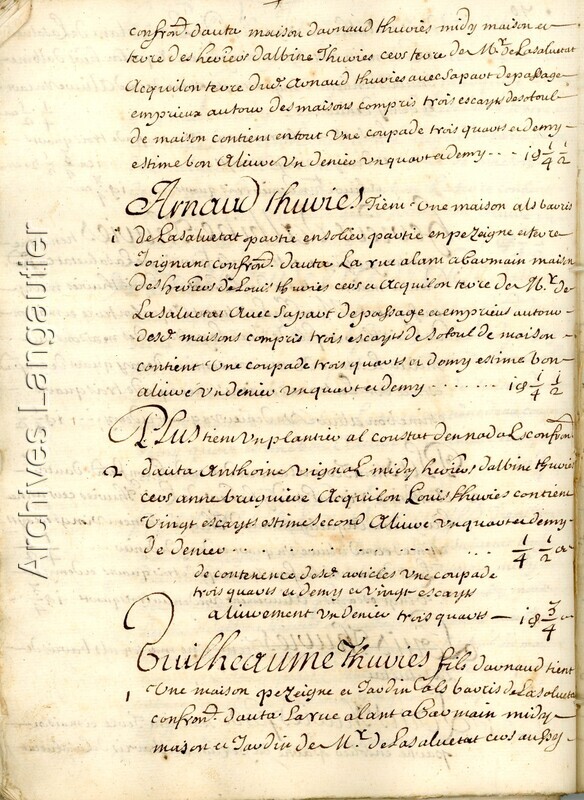 confron͞. d'auta maison d'arnaud thuvies midy maison et
terre des heriers d'albine Thuvies cers terre de Mr. de Lasaluetat
Acquilon terre dud. Arnaud thuvies avec sa part de passage
emprieux autour des maisons compris trois escayts de sotoul
de maison contient en tout Une coupade trois quarts et demy
estime bon Alivre Un denier Un quart et demy - - - 1 δ 1/4 1/2
Arnaud thuvies Tient Une maison als barris
1 de Lasaluetat partie en solier partie en pezeigne et terre
Joignant confron͞. d'auta La rue alant a Carmain maison
des heriers de Louis thuvies cers et Acquilon terre de Mr. de
Lasaluetat Avec sa part de passage et emprieus autour
desd. maisons compris trois escayts de sotoul de maison
contient Une coupade trois quarts et demy estime bon
alivre Un denier Un quart et demy . . . . . . . 1 δ 1/4 1/2
Plus tient Un plantier al coustat den nadal confron͞.
2 d'auta Anthoine Vignal midy heriers d'albine thuvies
cers anne bruguiere Acquilon Louis thuvies contient
Vingt escayts estime second Alivre Un quart et demy
de denier . . . . . . . . . . 1/4 1/2 δ
de contenence desd. articles Une coupade
trois quarts et demy et vingt escayts
alivrement Un denier trois quarts — 1 δ 3/4
Guilheaume Thuvies fils d'arnaud tient
1 Une maison pezeigne et Jardin als barris de Lasaluetat
confron͞. d'auta La rue alant a Carmain midy
maison et Jardin de Mr. de Lasaluetat cers
Archives Langautier